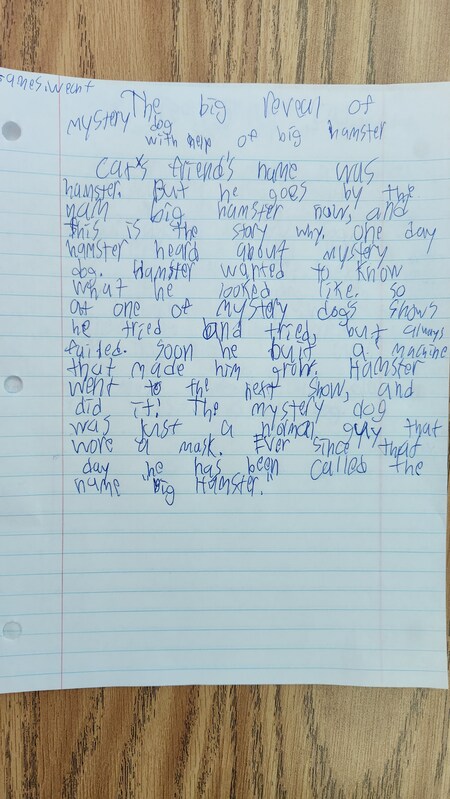 The big reveal of
mystery dog
with help of big hamster
Cat's friend's name was
hamster. But he goes by the
nam big hamster now, and
this is the story why. one day
hamster heard about mystery
dog. Hamster wanted to know
what he looked like. so
at one of mystery dogs shows
he tried and tried, but always
failed. soon he built a machine
that made him grow. Hamster
went to the next show, and
did it! The mystery dog
was just a normal guy that
wore a mask. Ever since that
day he has been called the
name "big Hamster."